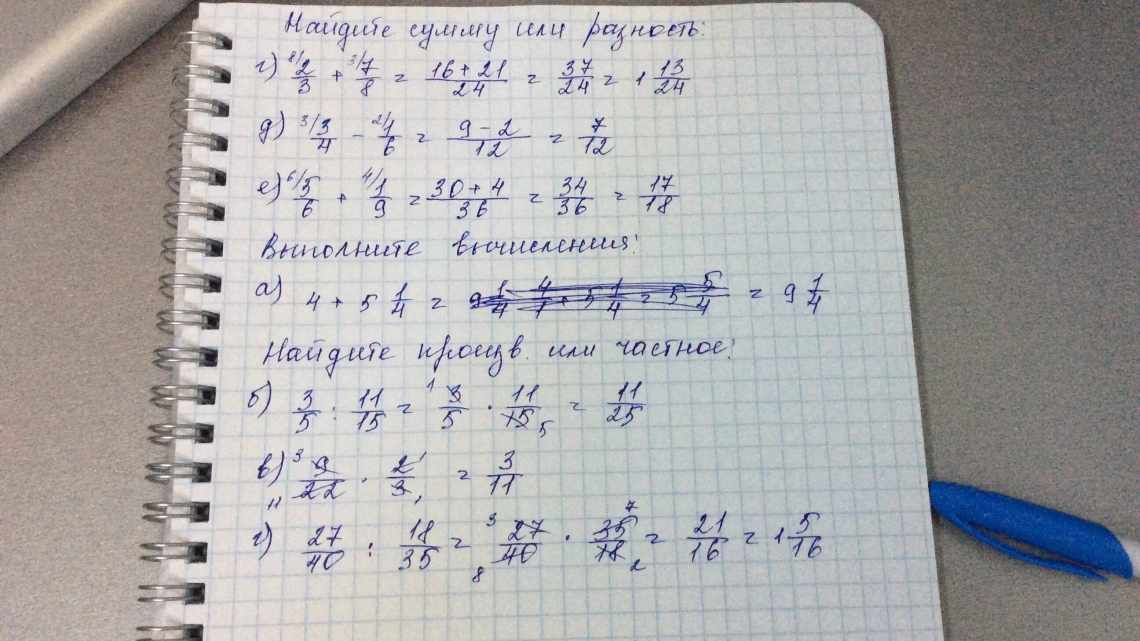 Найдите сумму или разность:
г) 8/ 2/3 + 3/ 7/8 = 16+21/24 = 37/24 = 1 13/24
д) 3/ 3/4 - 2/ 1/6 = 9-2/12 = 7/12
е) 6/ 5/6 + 4/ 1/9 = 30+4/36 = 34/36 = 17/18
Выполните вычисления:
а) 4 + 5 1/4 = 9 1/4 4/1 + 5 1/4 = 5 5/4 = 9 1/4
Найдите произв. или частное:
б) 3/5 : 11/15 = 1 3/5 · 11/15 5 = 11/25
в) 3 9/22 11 · 2/3 1 1 = 3/11
г) 27/40 : 18/35 = 3 27/40 8 · 35/18 7 2 = 21/16 = 1 5/16